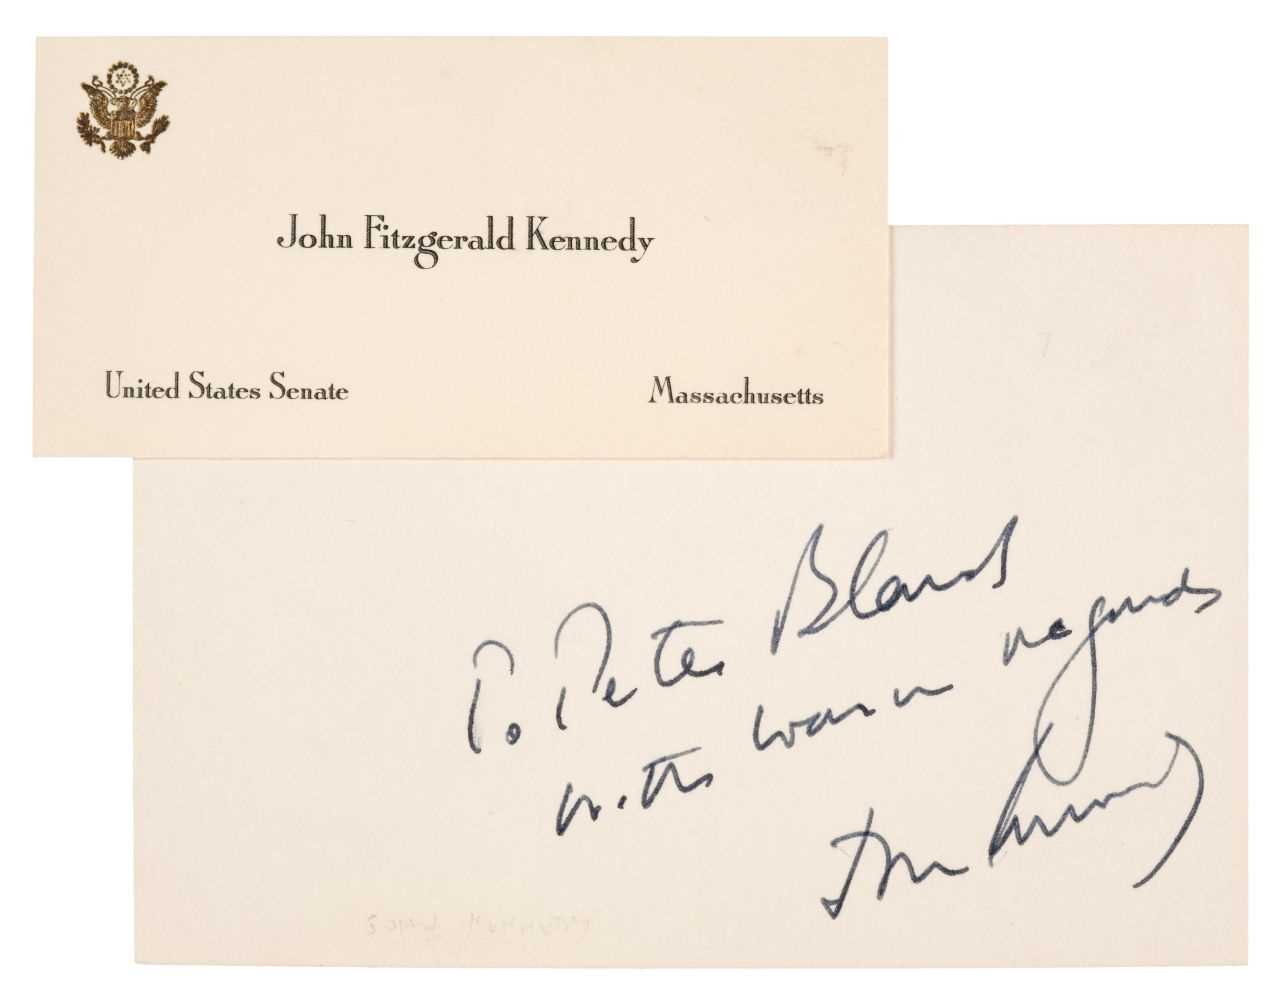 John Fitzgerald Kennedy
United States Senate Massachusetts
To Peter Bland
with warm regards
John Kennedy